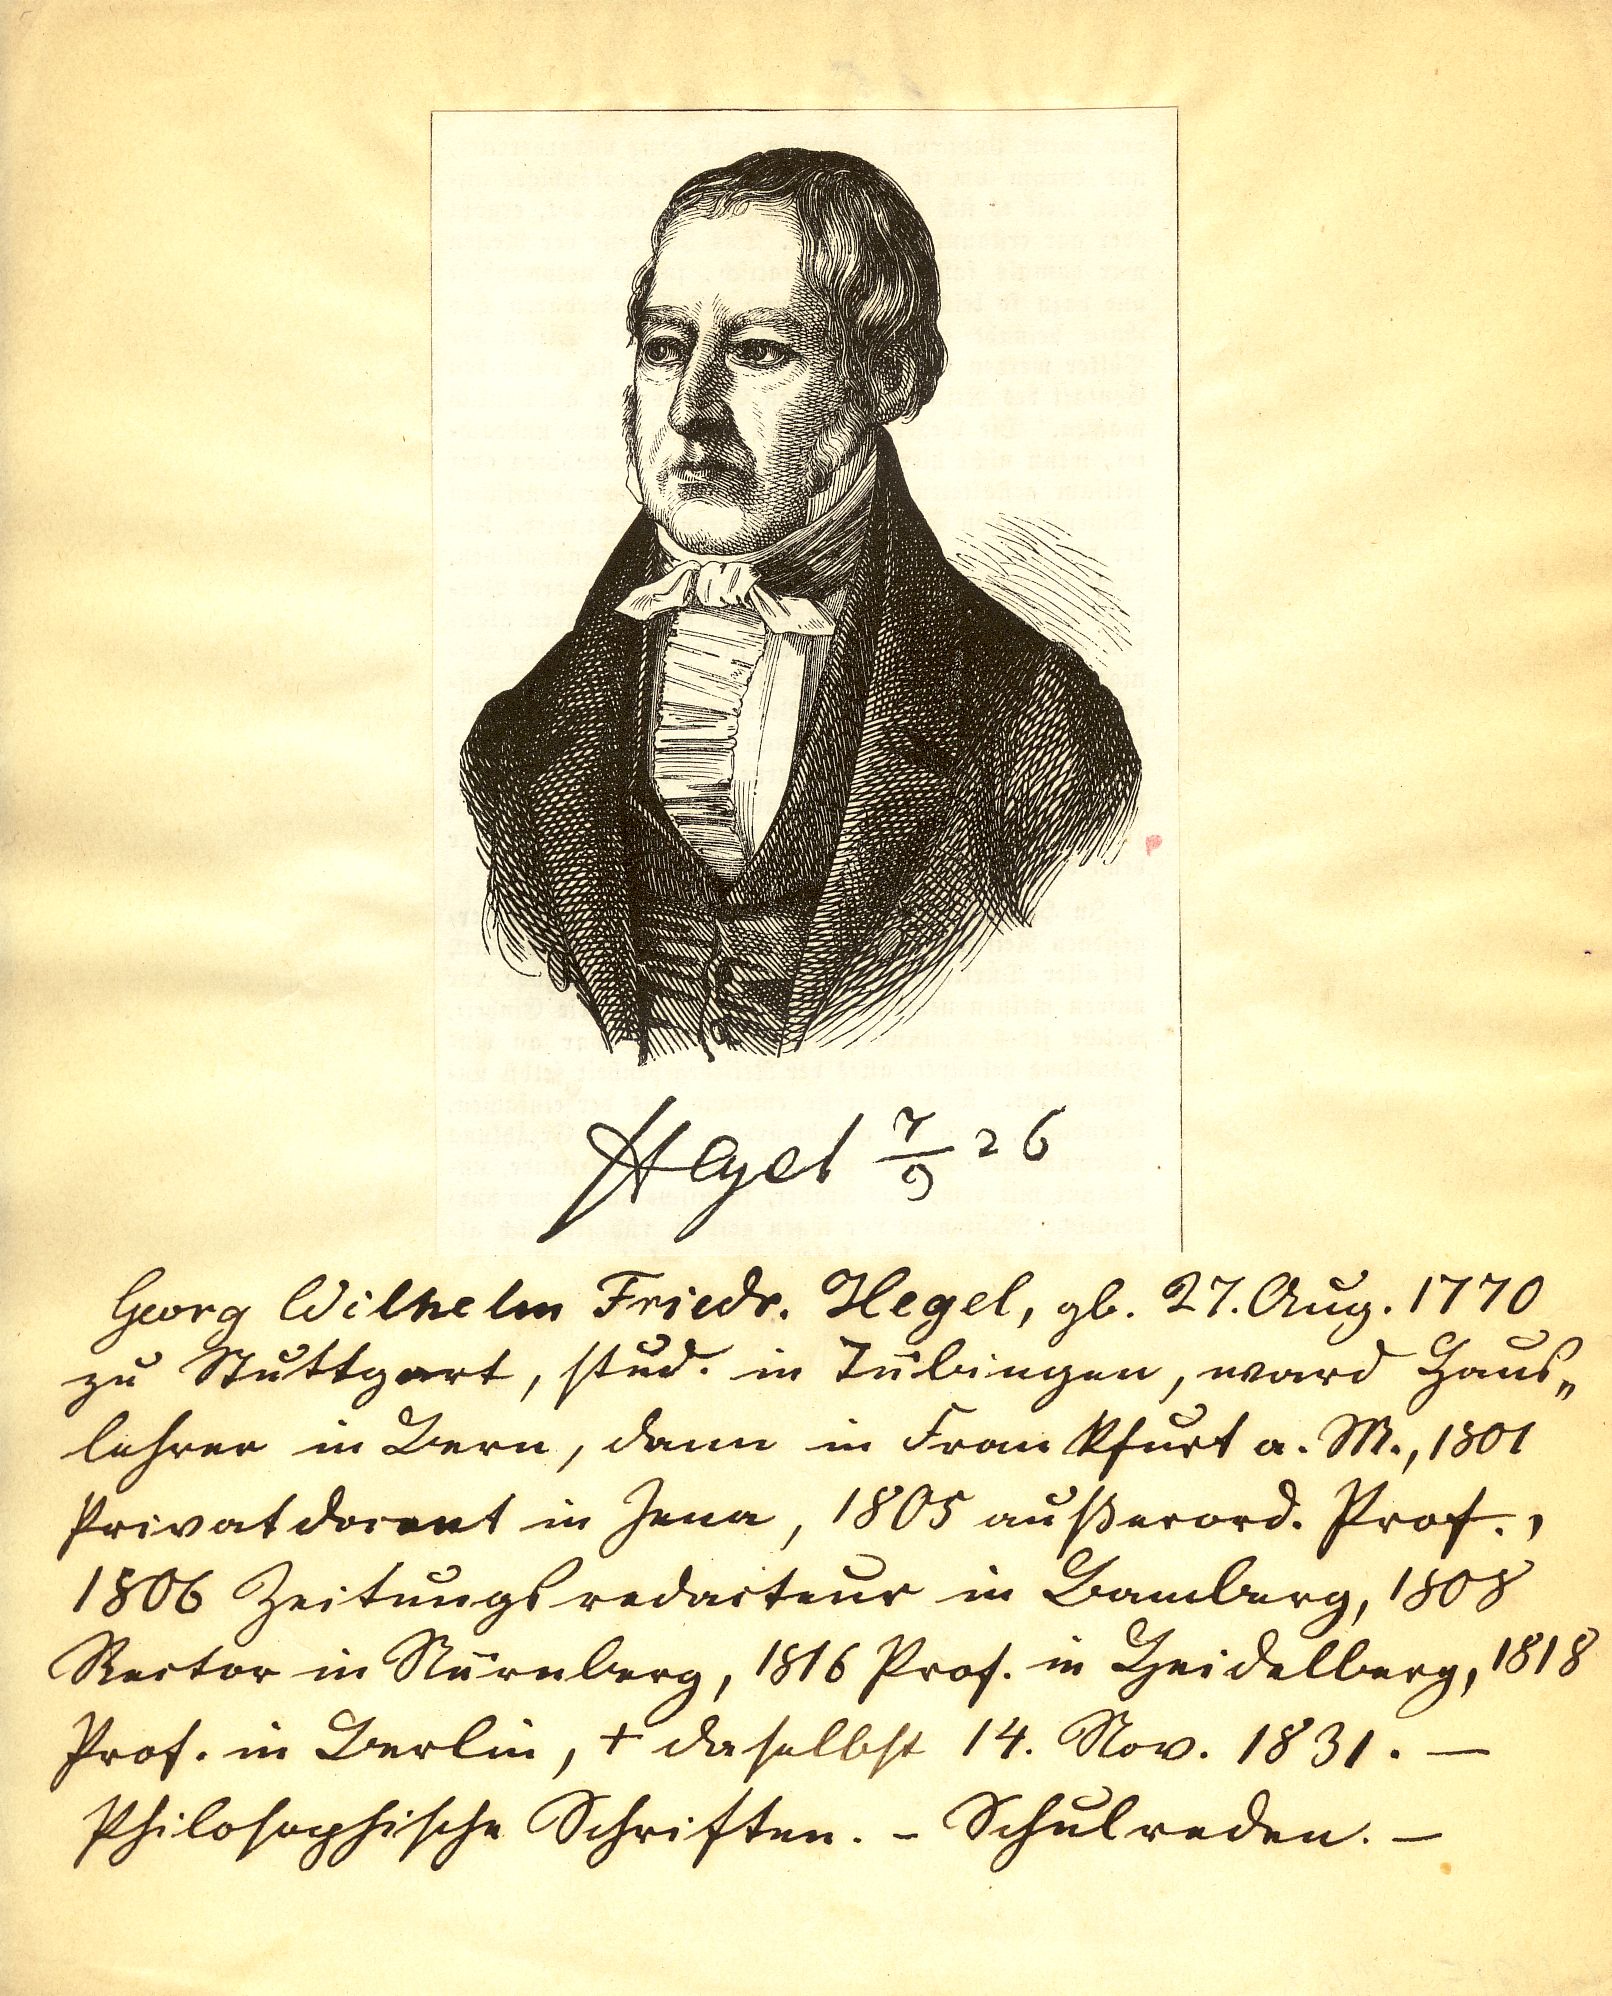 Hegel 7/9 26
Georg Wilhelm Friedr. Hegel, gb. 27. Aug. 1770
zu Stuttgart, stud. in Tübingen, ward Haus„
lehrer in Bern, dann in Frankfurt a. M., 1801
Privatdocent in Jena, 1805 außerord. Prof.,
1806 Zeitungsredacteur in Bamberg, 1808
Rector in Nürnberg, 1816 Prof. in Heidelberg, 1818
Prof. in Berlin, + daselbst 14. Nov. 1831. —
Philosophische Schriften. – Schulreden. —